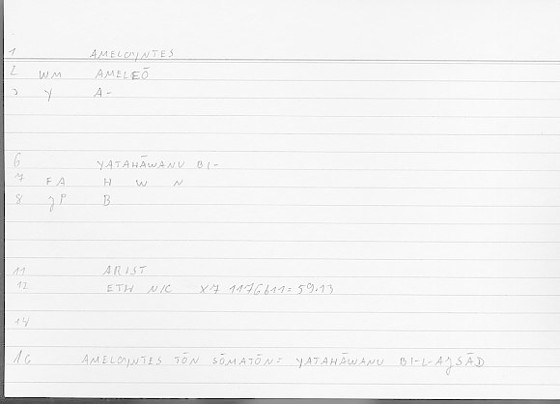 1 AMELOYNTES
2 WM AMELEŌ
3 Y A-
6 YATAHĀWANU BI-
7 FA H W N
8 JP B
11 ARIST
12 ETH NIC X7 1176b11=59.13
14
16 AMELOYNTES TŌN SŌMATŌN= YATAHĀWANU BI-L-AJSĀD